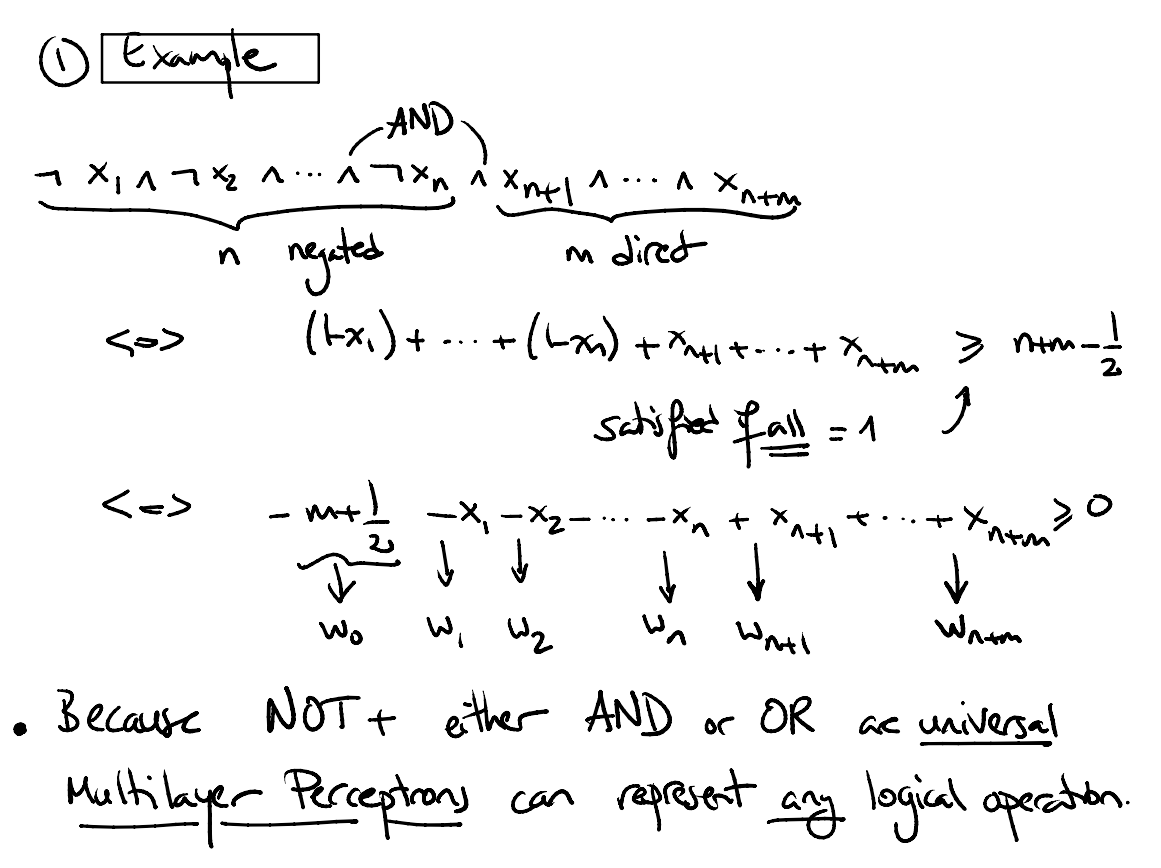 ① Example
AND
¬ x₁ ∧ ¬ x₂ ∧ ... ∧ ¬xₙ ∧ xₙ₊₁ ∧ ... ∧ xₙ₊ₘ
n negated m direct
<=> (1-x₁) + ... + (1-xₙ) + xₙ₊₁ + ... + xₙ₊ₘ ≥ n+m-1/2
satisfied if all = 1
<=> -m+1/2 -x₁ -x₂ - ... -xₙ + xₙ₊₁ + ... + xₙ₊ₘ ≥ 0
w₀ w₁ w₂ wₙ wₙ₊₁ wₙ₊ₘ
• Because NOT + either AND or OR are universal
Multilayer Perceptrons can represent any logical operation.